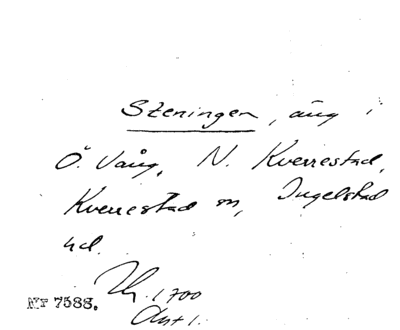 Steningen, äng i
Ö. Vång, N. Kverrestad,
Kverrestad sn, Ingelstad
hd.
1700
Akt 1.
Nr 7588.